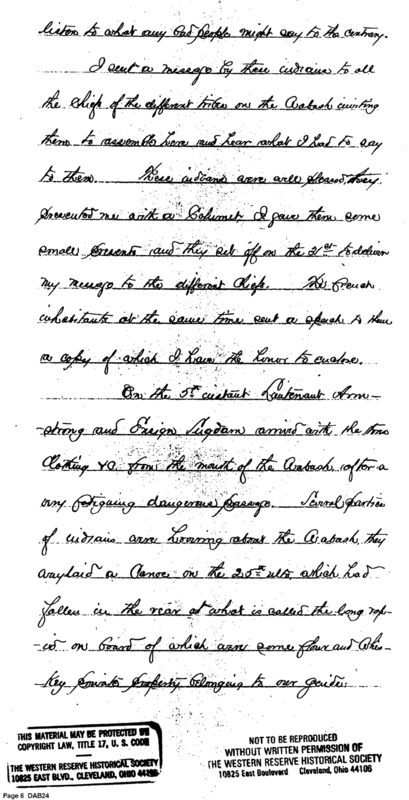 listen to what any bad people might say to the contrary.
I sent a message by these indians to all
the chiefs of the different tribes on the Wabash inviting
them to assemble here and hear what I had to say
to them. These indians were well pleased, they
presented me with a Calumet, I gave them some
small presents and they set off on the 31st to deliver
my message to the different Chiefs. The french
inhabitants at the same time sent a speech to them
a copy of which I have the honor to enclose.
On the 5th instant Lieutenant Arm-
-strong and Ensign arrived with the
Clothing &C. from the mouth of the Wabash, after a
very fatiguing dangerous passage. Several parties
of indians were hovering about the Wabash they
waylaid a Canoe on the 25th ulto. which had
fallen in the rear at what is called the long rap-
-id on board of which were some flour and Whis-
-key private property belonging to our guide.
THIS MATERIAL MAY BE PROTECTED BY
COPYRIGHT LAW, TITLE 17, U. S. CODE
THE WESTERN RESERVE HISTORICAL SOCIETY
10825 EAST BLVD., CLEVELAND, OHIO 44106
NOT TO BE REPRODUCED
WITHOUT WRITTEN PERMISSION OF
THE WESTERN RESERVE HISTORICAL SOCIETY
10825 East Boulevard Cleveland, Ohio 44106
Page 6 DAB24